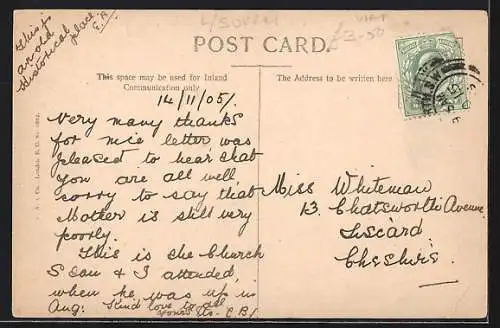 This is
an old
Historical place
E.B.
L/SOUTH
£3-50
POST CARD.
This space may be used for Inland
Communication only
The Address to be written here
14/11/05/.
Very many thanks
for nice letter was
pleased to hear that
you are all well
sorry to say that
Mother is still very
poorly.
This is the Church
S Dan & I attended
when he was up in
Aug: Kind love to all
yours etc. E.B/.
Miss Whiteman
13. Chatsworth Avenue
Liscard
Cheshire.